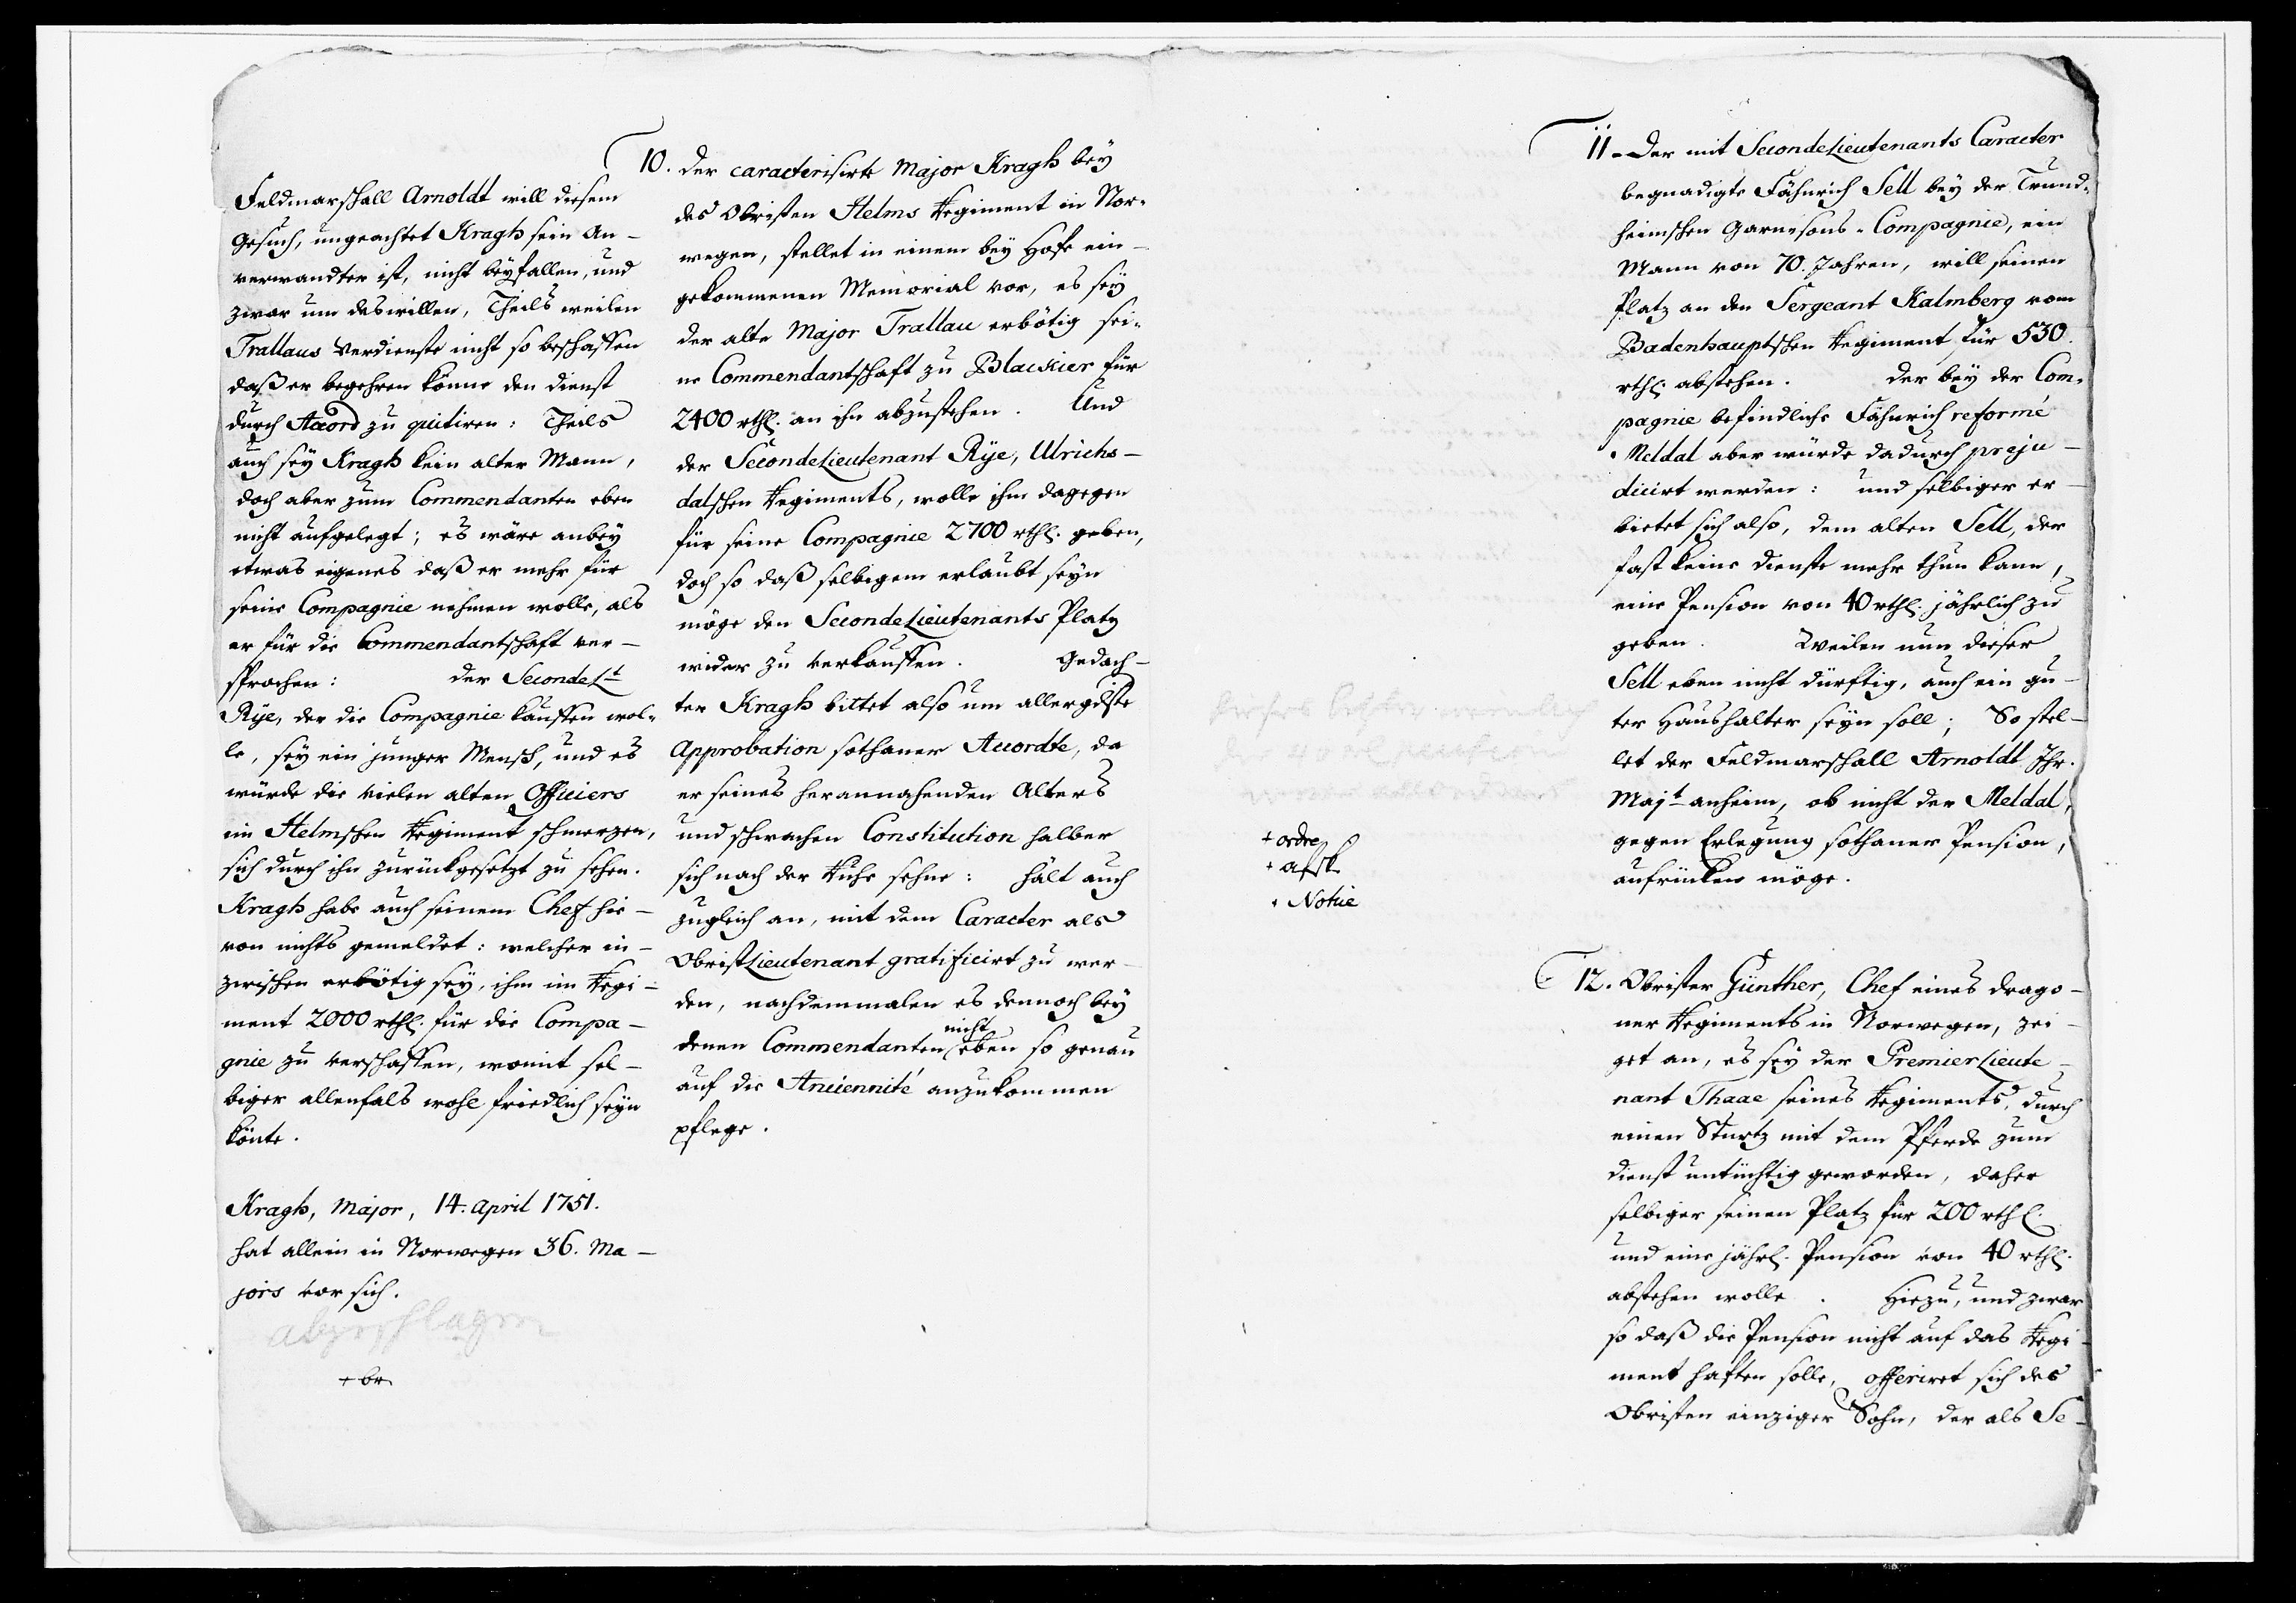 Feldmarschall Arnoldt will diesem
Gesuch, ungeachtet Kragh sein An-
verwandter ist, nicht beyfallen, und
zwar um deswillen, Theils weilen
Trallaus Verdienste nicht so beschaffen
daß er begehren könne den dienst
durch Accord zu quitiren: Theils
auch sey Kragh kein alter Mann,
doch aber zum Commendanten eben
nicht aufgelegt; es wäre anbey
etwas eigenes daß er mehr für
seine Compagnie nehmen wolle, als
er für die Commendantschaft ver-
sprochen: der SecondeLt
Rÿe, der die Compagnie kauffen wol-
le, sey ein junger Mensch, und es
würde die vielen alten Officiers
im Helmschen Regiment schmerzen,
sich durch ihn zurückgesetzt zu sehen.
Kragh habe auch seinem Chef hie-
von nichts gemeldet: welcher in-
zwischen erbötig sey, ihm im Regi-
ment 2000 rthl. für die Compa-
gnie zu verschaffen, womit sel-
biger allenfals wohl friedlich seyn
könte.
Kragh, Major, 14. April 1751.
hat allein in Norwegen 36. Ma-
jors vor sich.
abgeschlagen
+ br.
10. der caracterisirte Major Kragh bey
des Obristen Helms Regiment in Nor-
wegen, stellet in einem bey Hofe ein-
gekommenen Memorial vor, es sey
der alte Major Trallau erbötig sei-
ne Commendantschaft zu Blackier für
2400 rthl. an ihn abzustehen. Und
der SecondeLieutenant Rÿe, Ulrichs-
dalschen Regiments, wolle ihm dagegen
für seine Compagnie 2700 rthl. geben,
doch so daß selbigem erlaubt seyn
möge den SecondeLieutenants Platz
wider zu verkauffen. Gedach-
ter Kragh bittet also um allergdste
Approbation sothaner Accordte, da
er seines herannahenden Alters
und schwachen Constitution halber
sich nach der Ruhe sehne: hält auch
zugleich an, mit dem Caracter als
ObristLieutenant gratificirt zu wer-
den, nachdemmalen es dennoch bey
denen Commendanten nicht eben so genau
auf die Anciennité anzukommen
pflege.
+ ordre
+ afsk.
+ Notice
11. Der mit SecondeLieutenants Caracter
begnadigte Fähnrich Sell bey der Trund-
heimschen Garnisons-Compagnie, ein
Mann von 70. Jahren, will seinen
Platz an den Sergeant Kalmberg vom
Badenhauptschen Regiment für 530.
rthl. abstehen. Der bey der Com-
pagnie befindliche Fähnrich reformé
Meldal aber würde dadurch preju-
dicirt werden: und selbiger er-
bietet sich also, dem alten Sell, der
fast keine dienste mehr thun kann,
eine Pension von 40 rthl. jährlich zu
geben. Weilen nun dieser
Sell eben nicht dürftig, auch ein gu-
ter Haushalter seyn soll; So stel-
let der Feldmarschall Arnoldt Ihr.
Majt anheim, ob nicht der Meldal,
gegen Erlegung sothaner Pension,
aufrücken möge.
12. Obrister Günther, Chef eines Drago-
ner Regiments in Norwegen, zei-
get an, es sey der PremierLieute-
nant Thaae seines Regiments, durch
einen Sturtz mit dem Pferde zum
dienst untüchtig geworden, daher
selbiger seinen Platz für 200 rthl.
und eine jährl. Pension von 40 rthl.
abstehen wolle. Hiezu, und zwar
so daß die Pension nicht auf das Regi-
ment haften solle, offeriret sich des
Obristen einziger Sohn, der als Se-